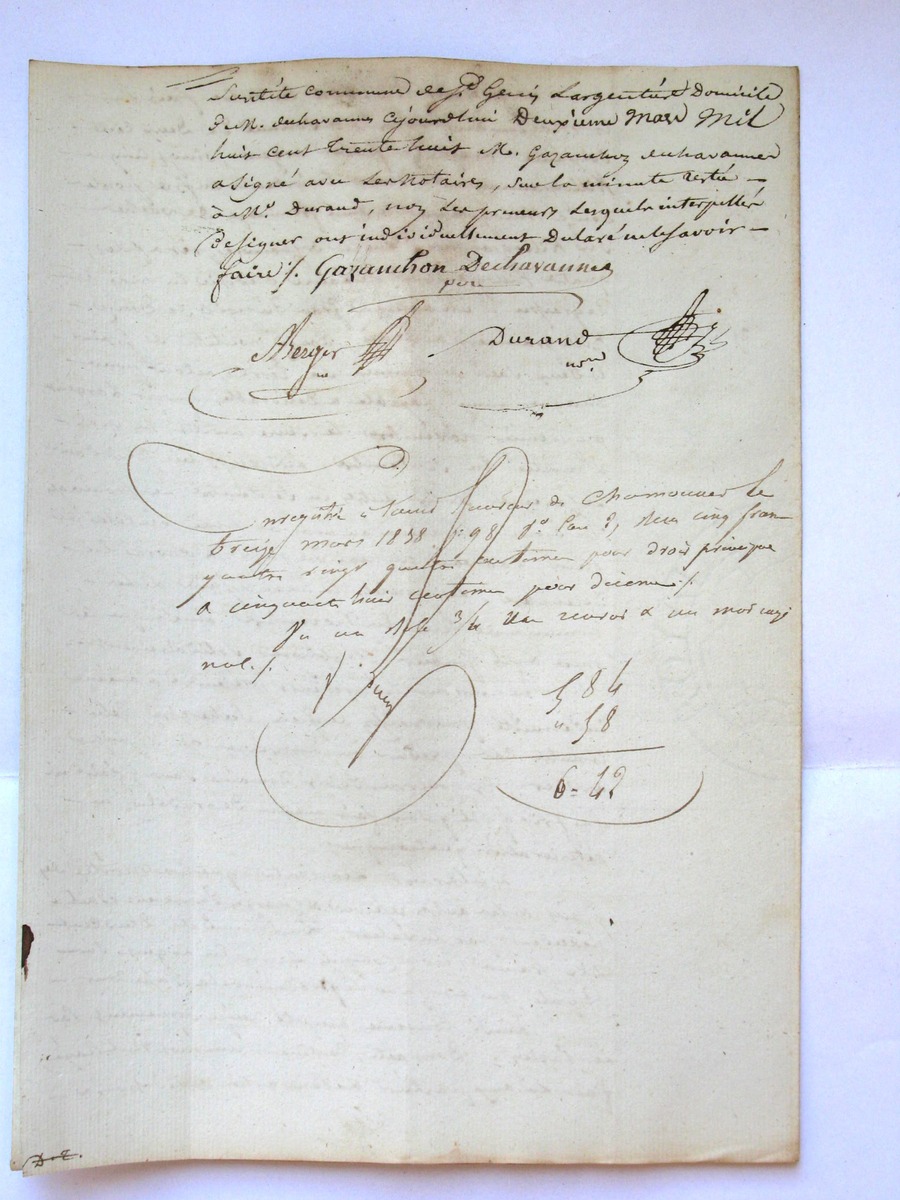 Susdite commune de St Genis Largentière Domicile
de M. dechavannes cejourdhui Deuxieme Mars Mil
huit cent trente huit M. Gazanchon dechavannes
a signé avec les Notaires, sur la minute restée
à Me Durand, non les preneurs lesquels interpellés
de signer ont individuellement Déclaré ne le savoir
faire ./. Gazanchon Dechavannes
père
Berger Durand
nre
Enregistré à Saint Laurent de Chamousset le
treize mars 1838 fo 98 Vo Case 3, Reçu cinq francs
quatre vingt quatre centimes pour droit principal
& cinquante huit centimes pour décime ./.
un renvoi & un mot rayé
nul ./.
5 84
" 58
6 = 42